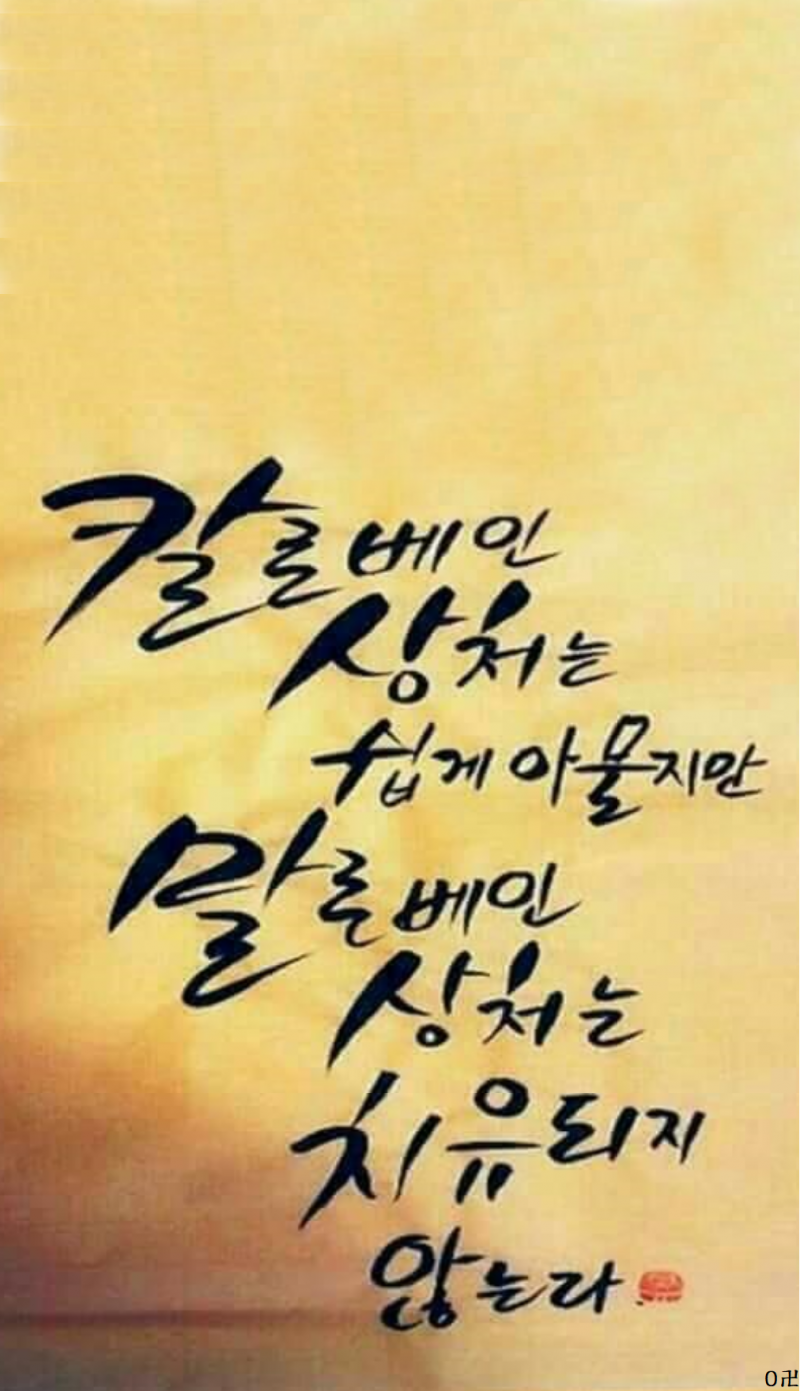 칼로 베인
상처는
쉽게 아물지만
말로 베인
상처는
치유되지
않는다
0卍